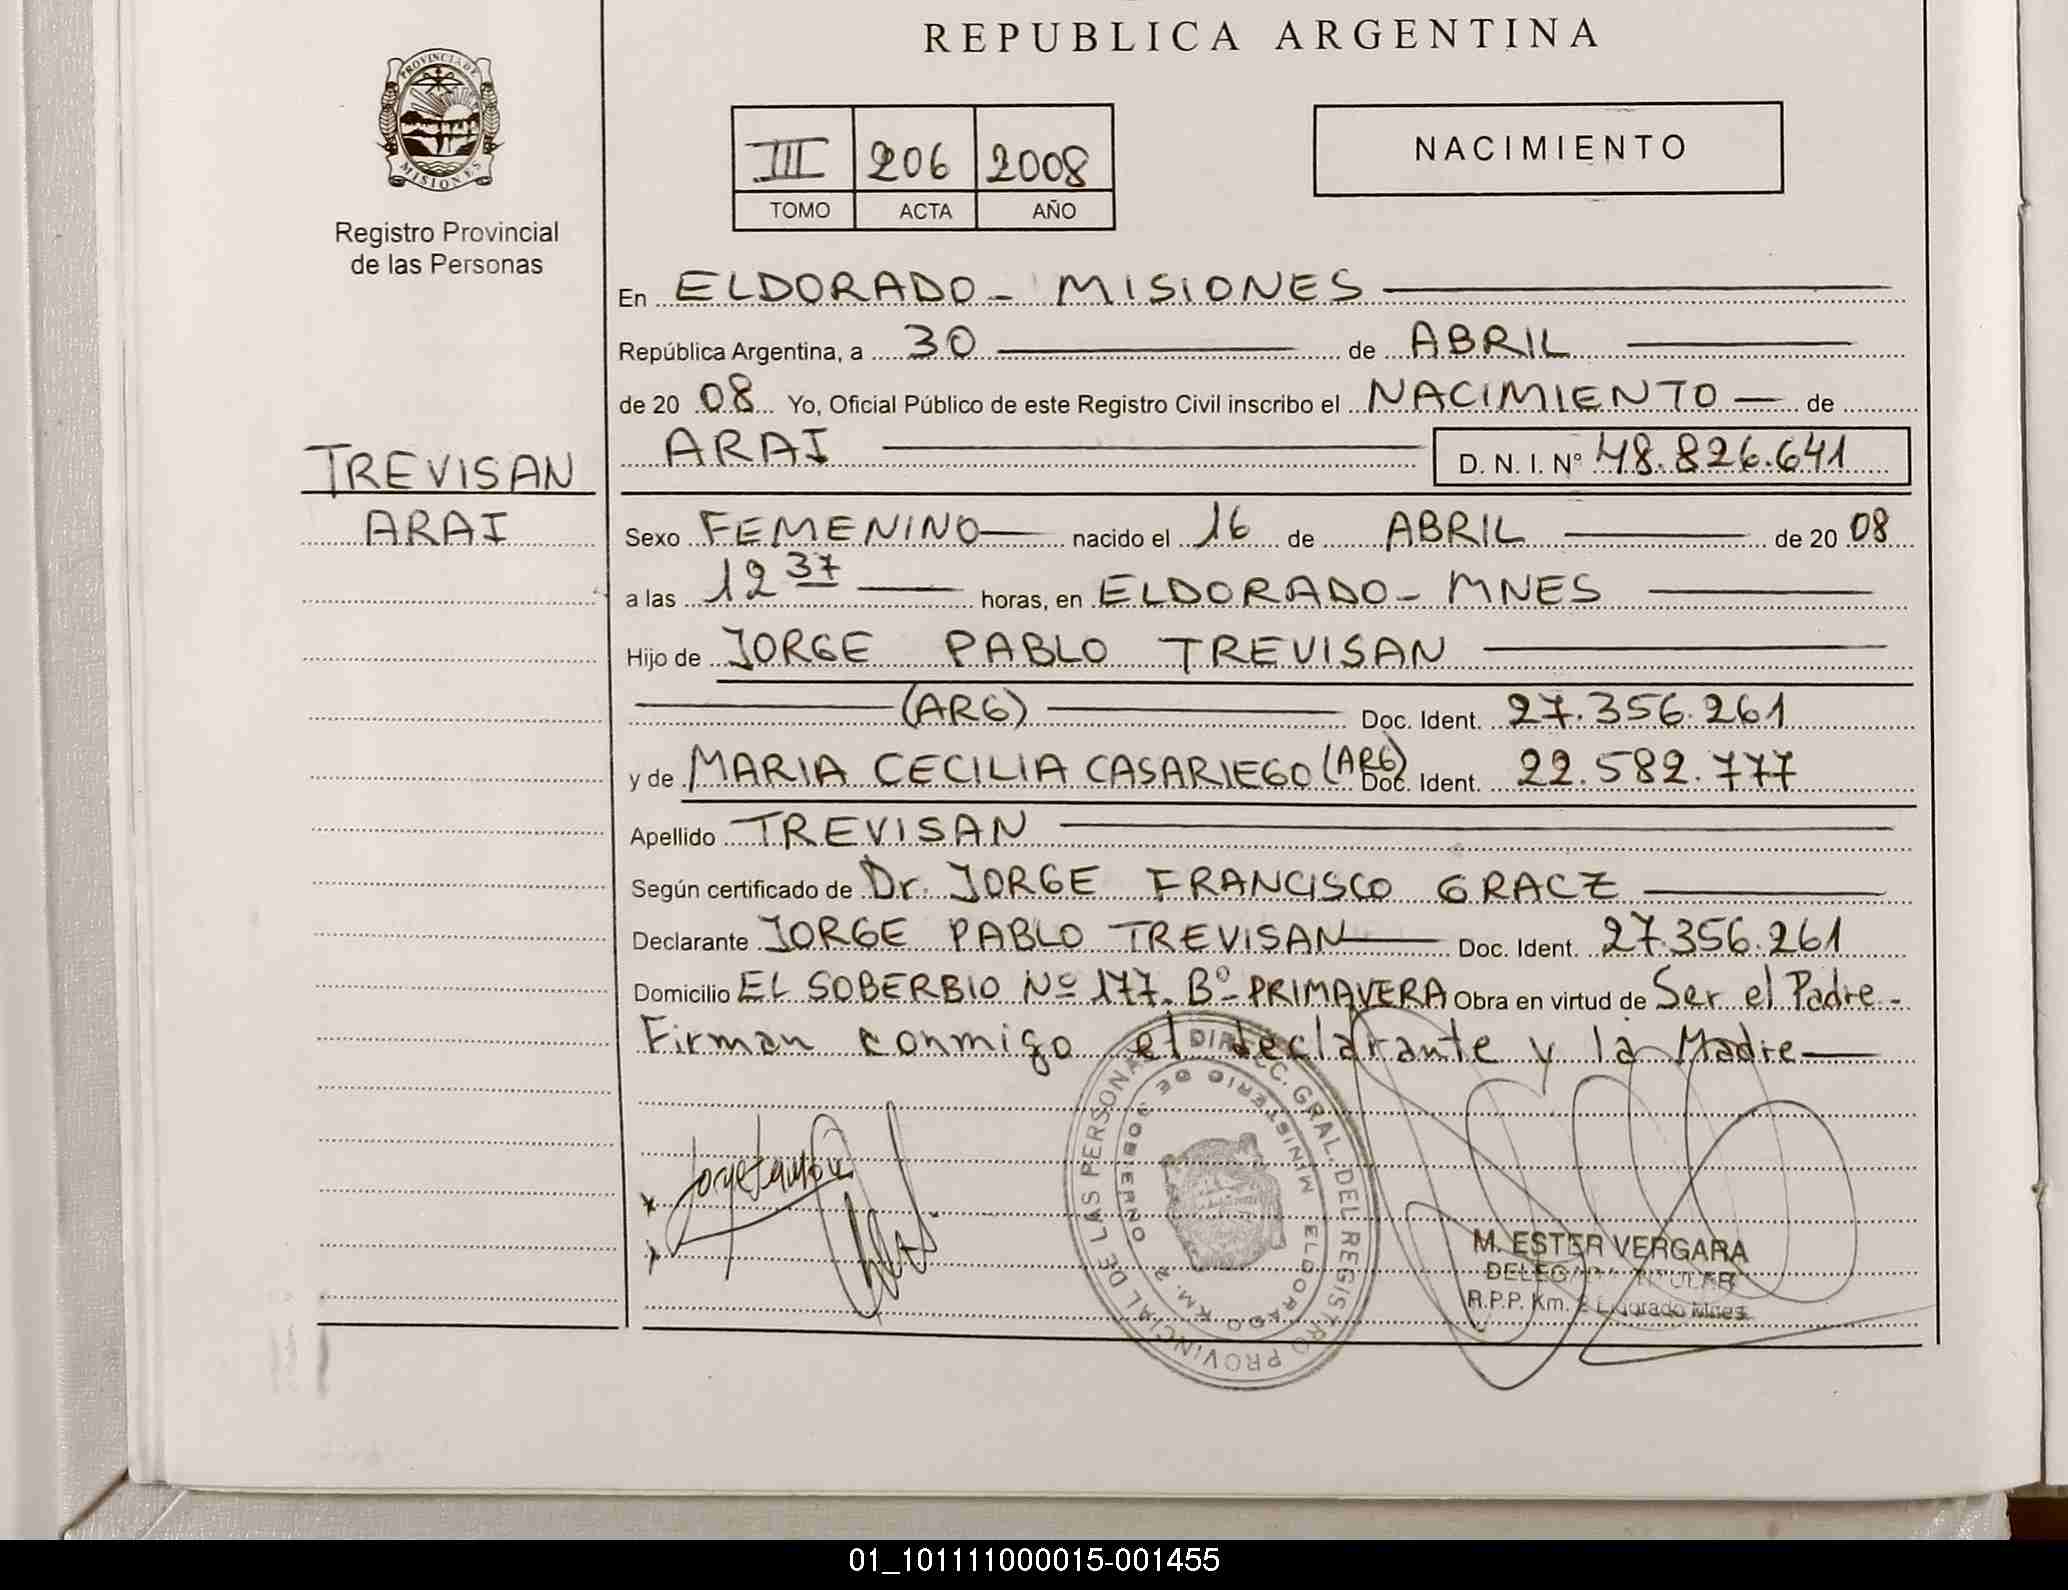 REPUBLICA ARGENTINA
PROVINCIA DE
MISIONES
Registro Provincial
de las Personas
III 206 2008
TOMO ACTA AÑO
NACIMIENTO
En ELDORADO - MISIONES
República Argentina, a 30 de ABRIL
de 20 08 Yo, Oficial Público de este Registro Civil inscribo el NACIMIENTO de
ARAI D. N. I. Nº 48.826.641
TREVISAN
ARAI
Sexo FEMENINO nacido el 16 de ABRIL de 20 08
a las 12 37 horas, en ELDORADO - MNES
Hijo de JORGE PABLO TREVISAN
(ARG) Doc. Ident. 27.356.261
y de MARIA CECILIA CASARIEGO (ARG) Doc. Ident. 22.582.777
Apellido TREVISAN
Según certificado de Dr. JORGE FRANCISCO GRACZ
Declarante JORGE PABLO TREVISAN Doc. Ident. 27.356.261
Domicilio EL SOBERBIO Nº 177. Bº PRIMAVERA Obra en virtud de Ser el Padre.
Firman conmigo el declarante y la Madre
DIRECC. GRAL. DEL REGISTRO PROVINCIAL DE LAS PERSONAS
MINISTERIO DE GOBIERNO
ELDORADO KM. 2
M. ESTER VERGARA
DELEGADA TITULAR
R.P.P. Km. 2 Eldorado Mnes
01_101111000015-001455